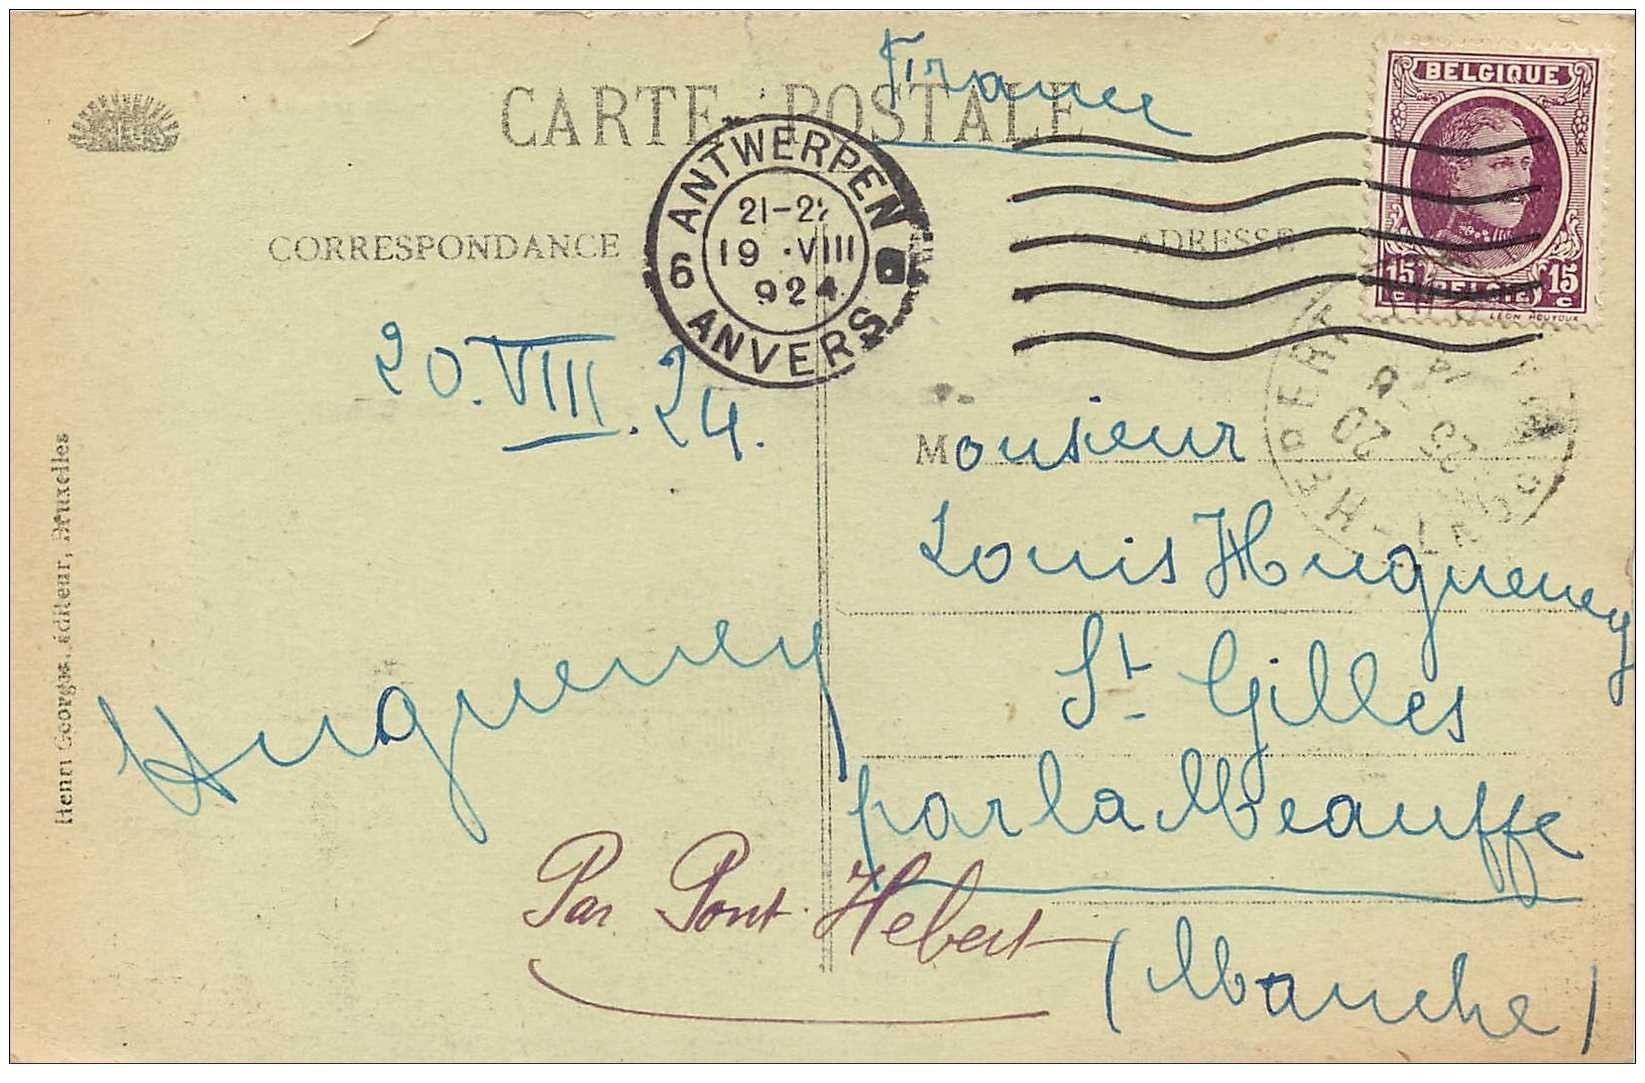 CARTE POSTALE
France
BELGIQUE
15 c BELGIE 15 c
LEON HOUYOUX
ANTWERPEN
21-2
19 VIII
924
6 6
ANVERS
CORRESPONDANCE
ADRESSE
20.VIII.24.
Monsieur
Louis Hugueney
St Gilles
par la Meauffe
(Manche)
Hugueney
Par Pont-Hebert
Henri Georges, éditeur, Bruxelles